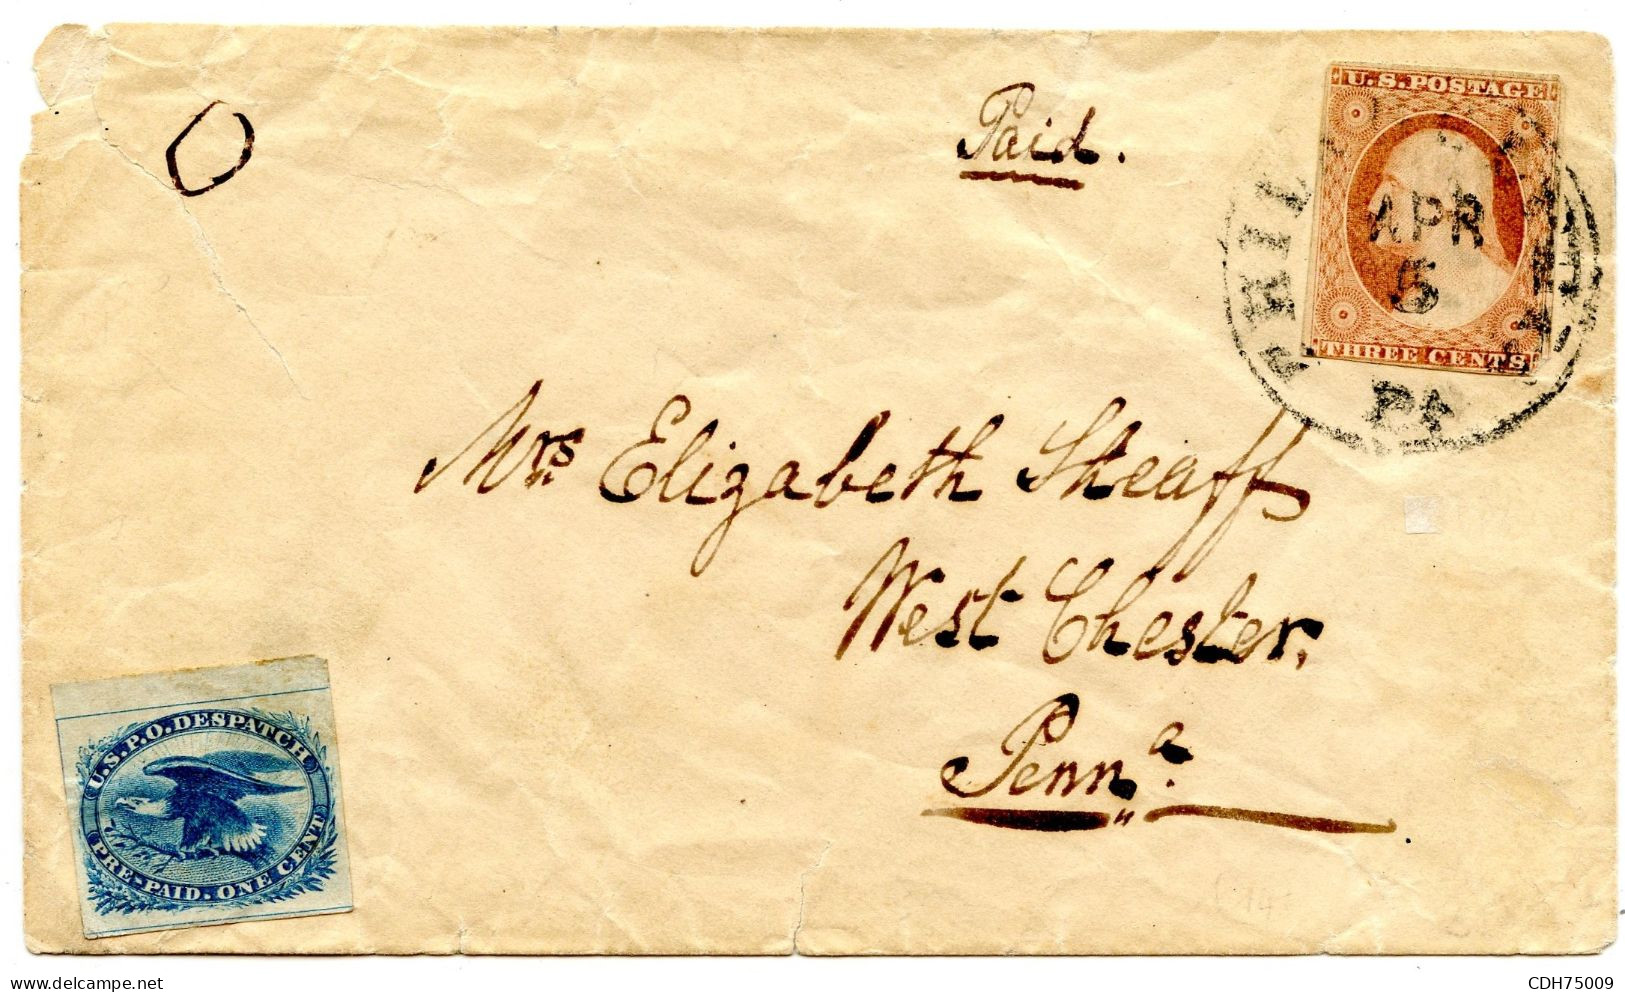 Paid.
U.S. POSTAGE
THREE CENTS
PHIL
APR
5
Pa
Mrs. Elizabeth Sheaff
West Chester,
Penna.
U.S.P.O. DESPATCH
PRE-PAID. ONE CENT
CDH75009